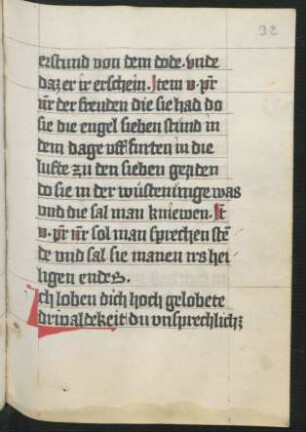 32
erstund von dem dode. vnde
daz er ir erschein. Item v. pr̄
nr̄ der freuden die sie had do
sie die engel sieben stund in
dem dage vff furten in die
lufte zu den sieben gezden
do sie in der wüsteninge was
vnd die sal man kniewen. It̄
v. pr̄ nr̄ sol man sprechen stē
de vnd sal sie manen irs hei
ligen endes.
Ich loben dich hoch gelobete
driualdekeit du vnsprechlich